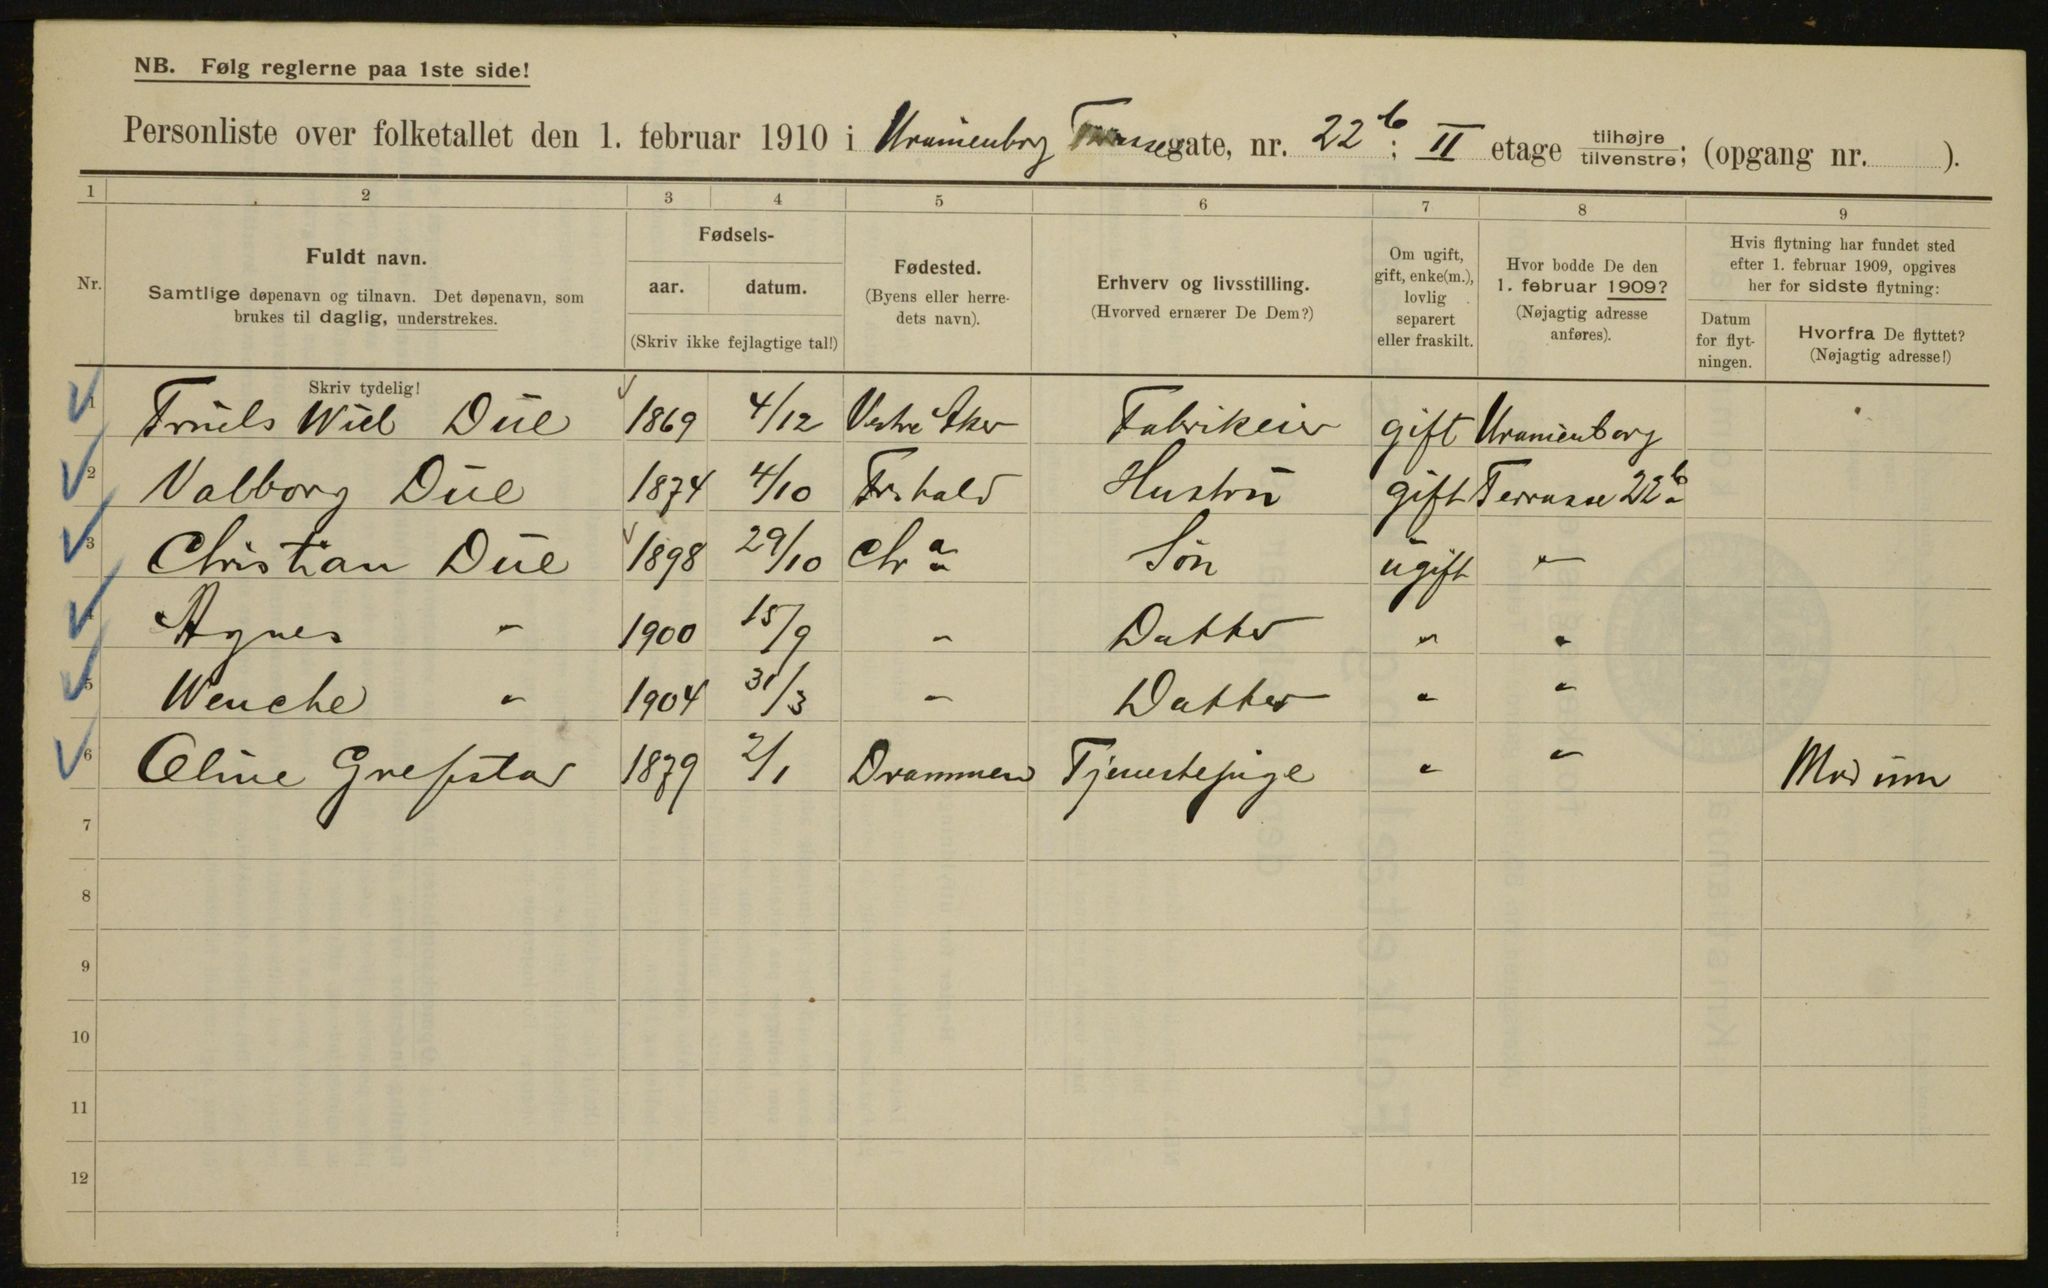 NB. Følg reglerne paa 1ste side!
Personliste over folketallet den 1. februar 1910 i Uranienborg Terrassegate, nr. 22b; II etage tilhøjre/tilvenstre; (opgang nr. ).
1 2 3 4 5 6 7 8 9
Nr.
Fuldt navn.
Samtlige døpenavn og tilnavn. Det døpenavn, som
brukes til daglig, understrekes.
Skriv tydelig!
Fødsels-
aar. datum.
(Skriv ikke fejlagtige tal!)
Fødested.
(Byens eller herre-
dets navn).
Erhverv og livsstilling.
(Hvorved ernærer De Dem?)
Om ugift,
gift, enke(m.),
lovlig
separert
eller fraskilt.
Hvor bodde De den
1. februar 1909?
(Nøjagtig adresse
anføres).
Hvis flytning har fundet sted
efter 1. februar 1909, opgives
her for sidste flytning:
Datum
for flyt-
ningen.
Hvorfra De flyttet?
(Nøjagtig adresse!)
1 Truels Wiel Due 1869 4/12 Vestre Aker Fabrikeier gift Uranienborg
2 Valborg Due 1874 4/10 Frhald Hustru gift Terrasse 22b
3 Christian Due 1898 29/10 Chra Søn ugift "
4 Agnes " 1900 15/9 " Datter " "
5 Wenche " 1904 31/3 " Datter " "
6 Oline Grefstad 1879 2/1 Drammen Tjenestepige " " Modum
7
8
9
10
11
12